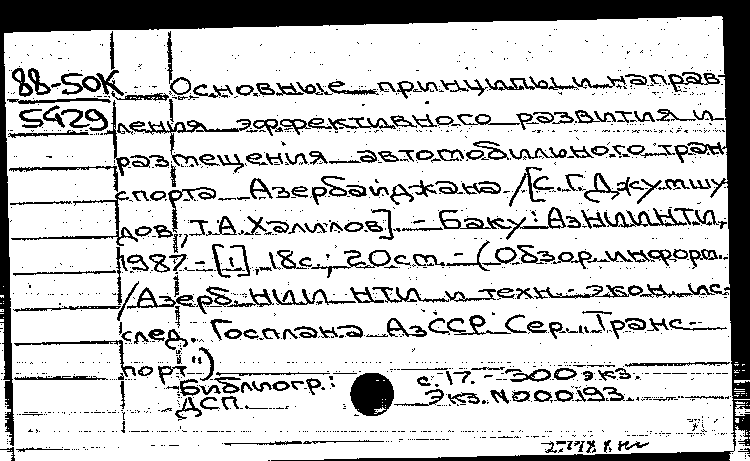 88-50К Основные принципы и направ-
5429 ления эффективного развития и
размещения автомобильного тран
спорта Азербайджана /[С.Г.Джумшу
дов, Т.А.Халилов]. - Баку: АзНИИНТИ,
1987 - [1], 18с.; 20см. - (Обзор. информ.
/Азерб. НИИ НТИ и техн.-экон. ис-
след. Госплана АзССР. Сер. „Транс-
порт")
Библиогр.: с.17. - 300экз.
ДСП. Экз. N000193